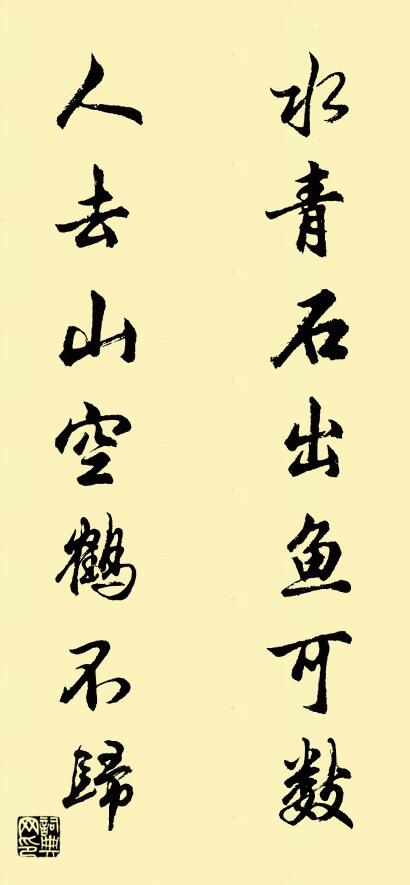 水青石出鱼可数
人去山空鹤不歸
詞典网印